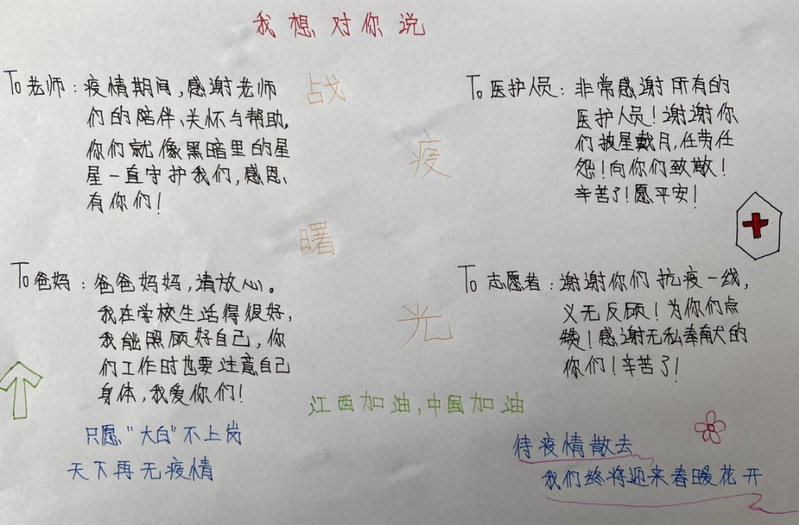 我想对你说
To老师：疫情期间，感谢老师
们的陪伴、关怀与帮助，
你们就像黑暗里的星
星一直守护我们，感恩、
有你们！
战
疫
曙
光
To医护人员：非常感谢所有的
医护人员！谢谢你
们披星戴月，任劳任
怨！向你们致敬！
辛苦了！愿平安！
To爸妈：爸爸妈妈，请放心。
我在学校生活得很好，
我能照顾好自己，你
们工作时也要注意自己
身体，我爱你们！
To志愿者：谢谢你们抗疫一线，
义无反顾！为你们点
赞！感谢无私奉献的
你们！辛苦了！
江西加油，中国加油
只愿“大白”不上岗
天下再无疫情
待疫情散去
我们终将迎来春暖花开